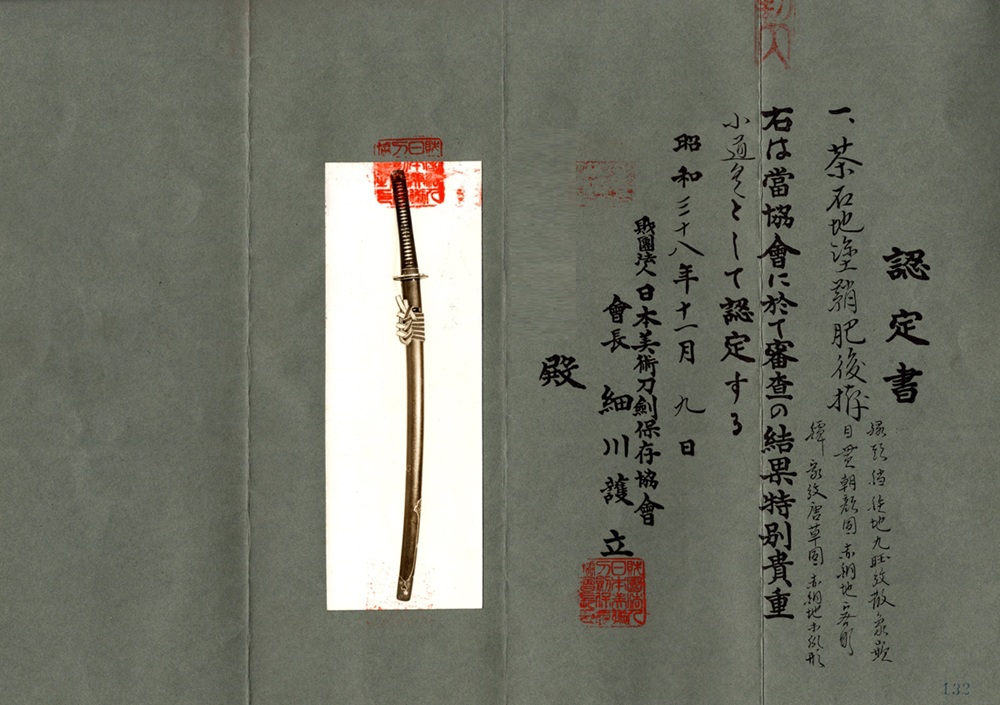 認定書
一、茶石地塗鞘肥後拵
縁頭 鐺 鉄地九曜紋散象嵌
目貫 朝顔図 赤銅地 容彫
鐔 家紋唐草図 赤銅地 木瓜形
右は當協會に於て審査の結果特別貴重
小道具として認定する
昭和三十八年十一月九日
財團法人日本美術刀劍保存協會
會長 細川護立
殿
132